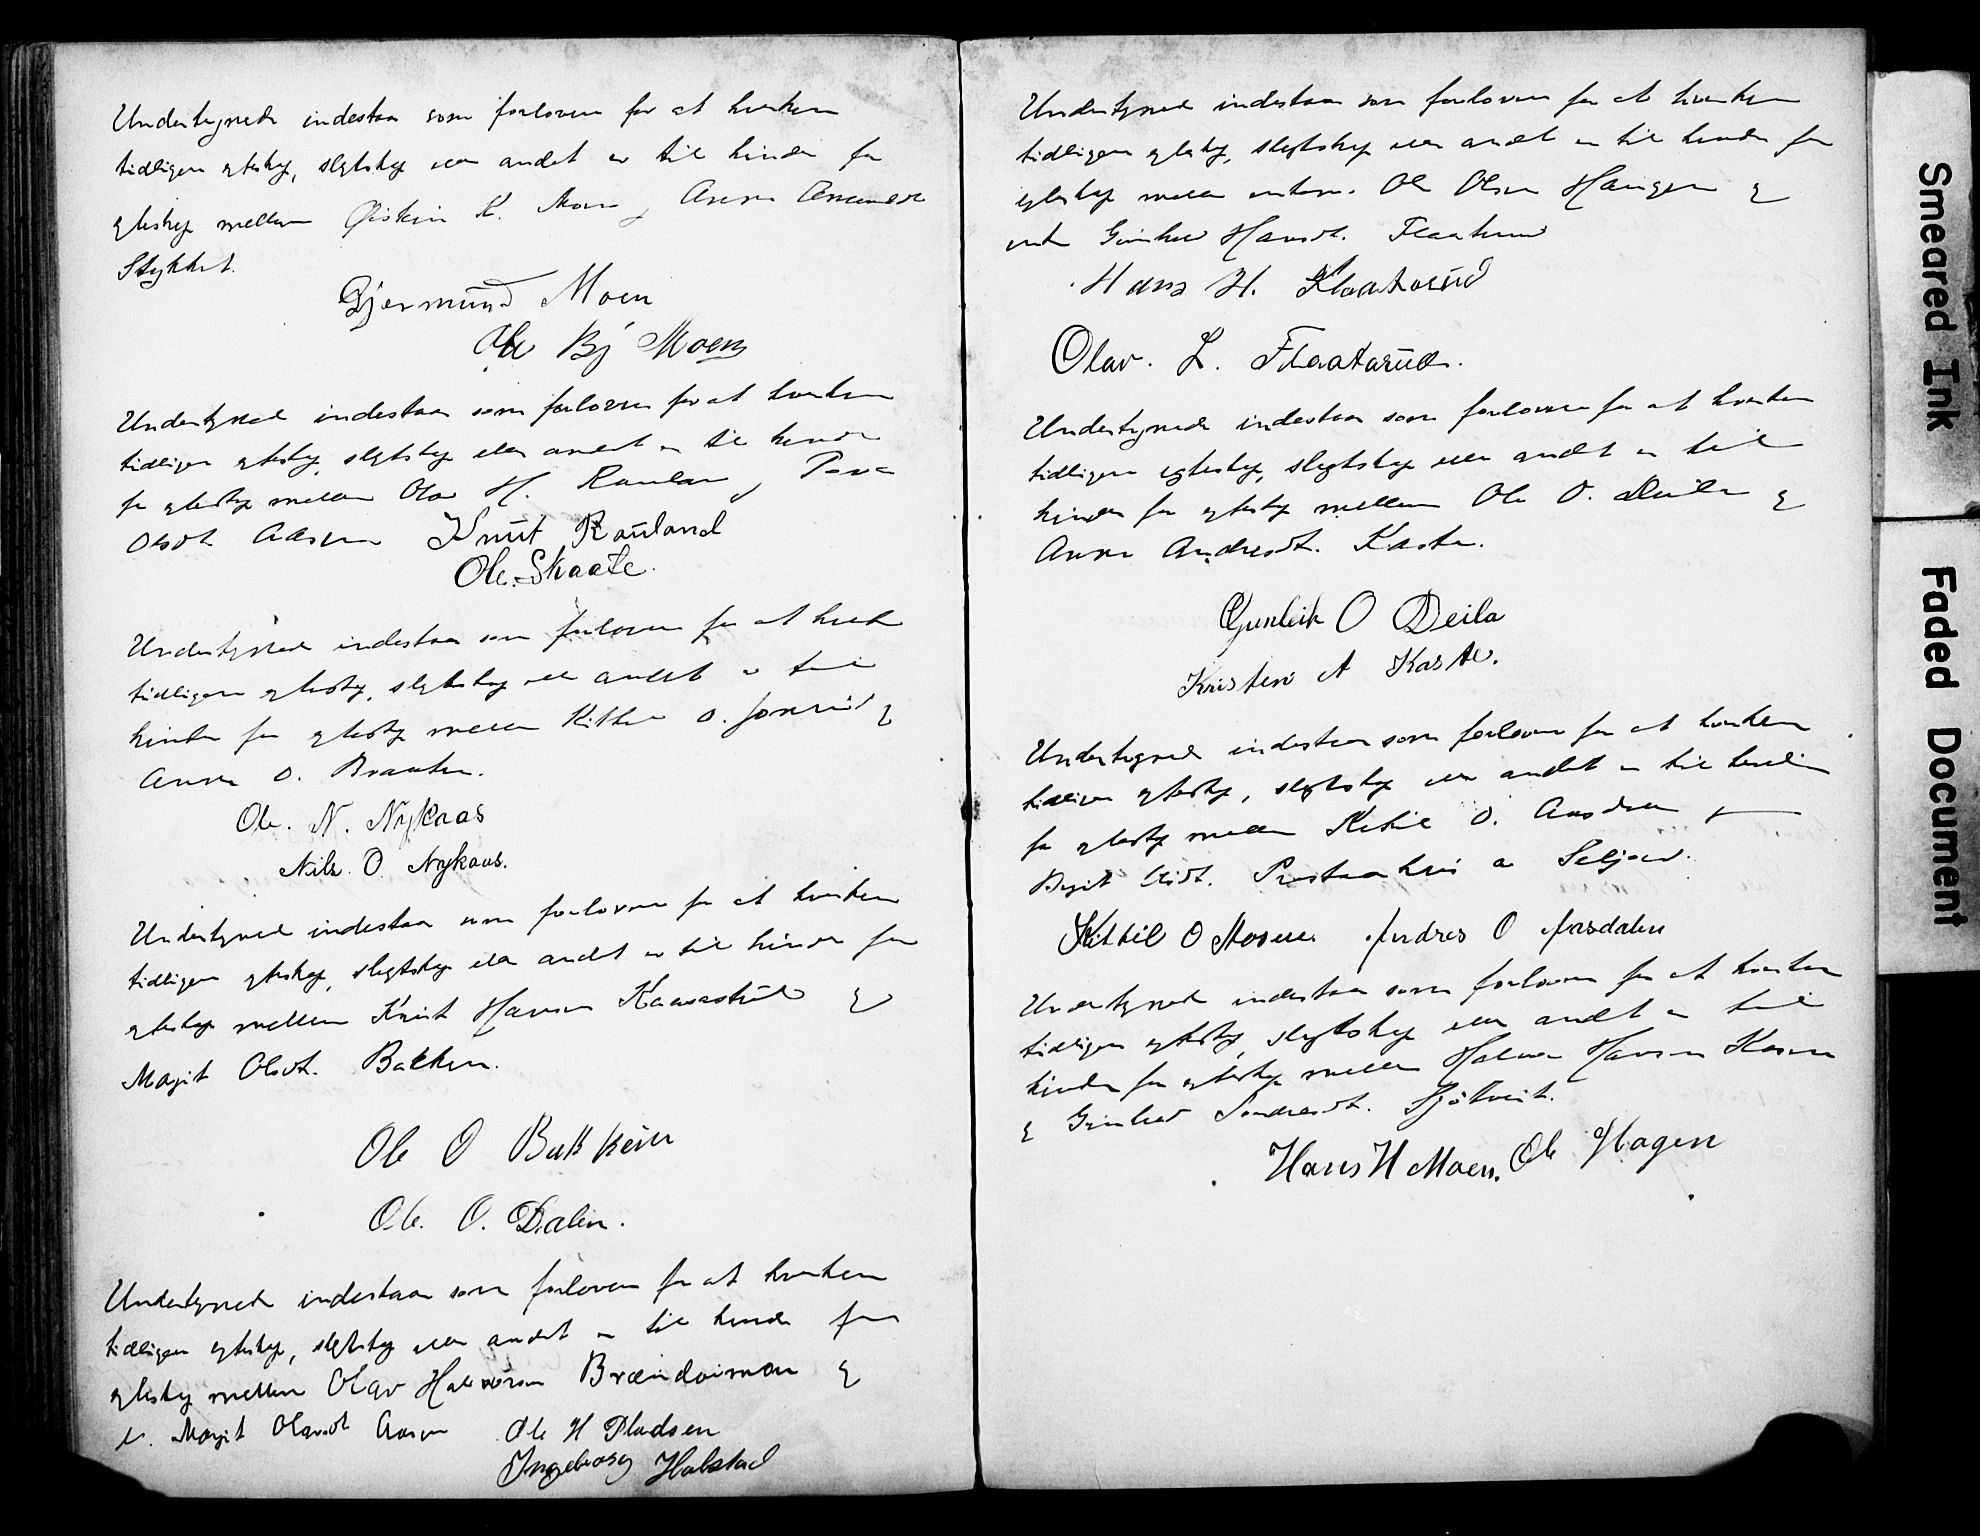 Undertegnede indestaa som forlovere for at hverken
tidligere egteskap, slegtskap eller andet er til hinder for
egteskap mellem Øistein K. Moen og Anne Amundsdt
Stykket.
Gjermund Moen
Ole Bj Moen
Undertegnede indestaar som forlovere for at hverken
tidligere egteskap, slegtskap eller andet er til hinder
for egteskap mellem Olav H. Rauland og
Olsdt Aasen Knut Rauland
Ole Skaate.
Undertegnede indestaar som forlovere for at hverken
tidligere egteskap, slegtskap eller andet er til
hinder for egteskap mellem O. Jonsrud og
Anne O. Braaten.
Ole. N. Nykaas
Nils. O Nykaas.
Undertegnede indestaar som forlovere for at hverken
tidligere egteskap, slegtskap eller andet er til hinder for
egteskap mellem Knut Hansen Kaasastul og
Margit Olsdt. Bakken.
Ole O Bakken
Ole. O. Dalen.
Undertegnede indestaar som forlovere for at hverken
tidligere egteskap, slegtskap eller andet er til hinder for
egteskap mellem Olav Halvorsen Brændoimoen og
Margit Olavsdt Aasen Ole H Pladsen
Ingeborg Habstad
Undertegnede indestaar som forlovere for at hverken
tidligere egteskap, slegtskap eller andet er til hinder for
egteskap mellem Ole Olsen Haugen og
Gunhild Hansdt. Flaaterud
Hans H. Flaaterud
Olav. L. Flaatarud.
Undertegnede indestaar som forlovere for at hverken
tidligere egteskap, slegtskap eller andet er til
hinder for egteskap mellem Ole O. Deila og
Anne Andresdt. Kaste.
Gunleik O Deila
Kristen A Kaste.
Undertegnede indestaar som forlovere for at hverken
tidligere egteskap, slegtskap eller andet er til hinder
for egteskap mellem Ketil O. Aasdalen og
Birgit Prestaahus a Seljord.
Kittil O Moene Andres O Aasdalen
Undertegnede indestaar som forlovere for at hverken
tidligere egteskap, slegtskap eller andet er til
hinder for egteskap mellem Halvor Hansen Kaasa
og Gunhild Sondresdt. Sjøtveit.
Hans H Moen. Ole Hagen
Smeared Ink
Faded Document